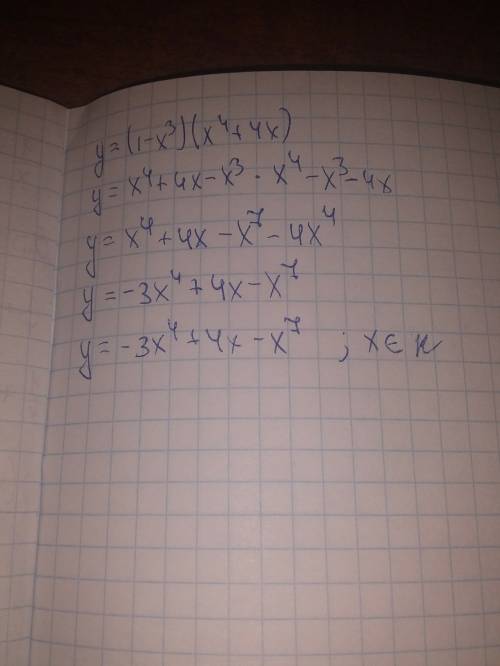 y = (1-x³)(x⁴+4x)
y = x⁴+4x-x³ · x⁴-x³-4x
y = x⁴+4x-x⁷-4x⁴
y = -3x⁴+4x-x⁷
y = -3x⁴+4x-x⁷ ; x∈R